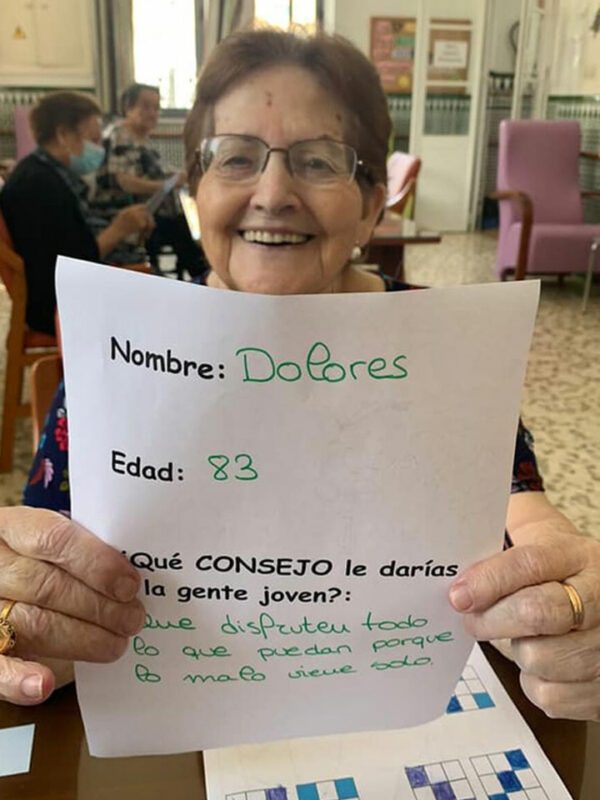 Nombre: Dolores
Edad: 83
¿Qué CONSEJO le darías
la gente joven?:
Que disfruten todo
lo que puedan porque
lo malo viene solo.